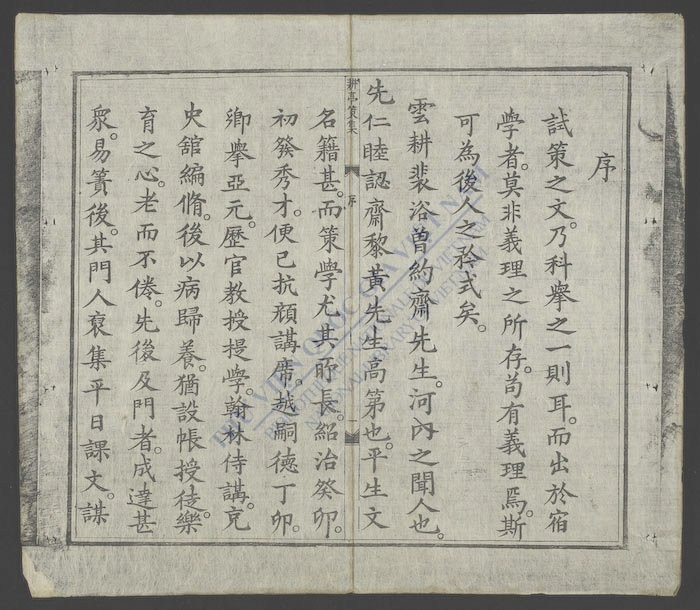 序
試策之文。乃科舉之一則耳。而出於宿
學者。莫非義理之所存。苟有義理焉。斯
可為後人之矜式矣。
雲耕裴浴曾約齋先生。河內之聞人也。
先仁睦認齋黎黃先生高第也。平生文
耕亭策集
序
名籍甚。而策學尤其所長。紹治癸卯。
初發秀才。便已抗顔講席。越嗣德丁卯。
鄉舉亞元。歷官教授提學。翰林侍講。充
史舘編脩。後以病歸養。猶設帳授徒。樂
育之心。老而不倦。先後及門者。成達甚
衆。易簀後。其門人裒集平日課文。謀